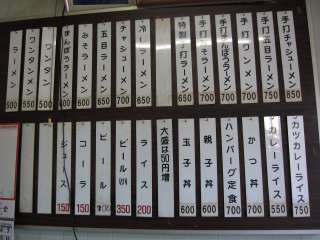 手打チャシューメン 850
手打五目ラーメン 750
手打ワンメン 700
手打もやしラーメン 700
手打みそラーメン 700
特製手打ラーメン 650
冷しラーメン 650
チャシューメン 700
五目ラーメン 650
みそラーメン 600
ワンタン 500
ワンタンメン 550
ラーメン 500
カツカレーライス 750
カレーライス 550
かつ丼 700
ハンバーグ定食 700
親子丼 600
玉子丼 600
大盛は50円増
ライス 200
ビール 350
ビール
コーラ 150
ジュース 150